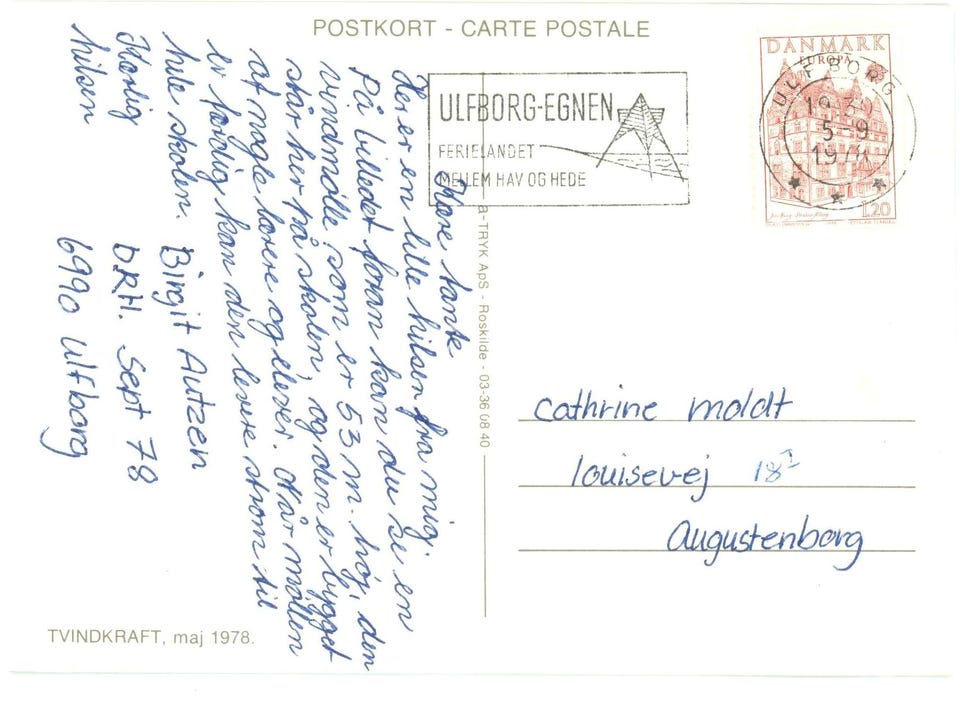 POSTKORT - CARTE POSTALE
DANMARK
EUROPA
ULFBORG
19-30
5-9
1978
1.20
ULFBORG-EGNEN
FERIELANDET
MELLEM HAV OG HEDE
Kære tante
Her er en lille hilsen fra mig.
På billedet foran kan du se en
vindmølle som er 53 m. høj, den
står her på skolen, og den er bygget
af nogle lærere og elever. Når møllen
er færdig kan den levere strøm til
hele skolen.
Kærlig
hilsen
Birgit Autzen
DRH. Sept 78
6990 Ulfborg
a-TRYK ApS - Roskilde - 03-36 08 40
Cathrine Moldt
Louisevej 18 I
Augustenborg
TVINDKRAFT, maj 1978.